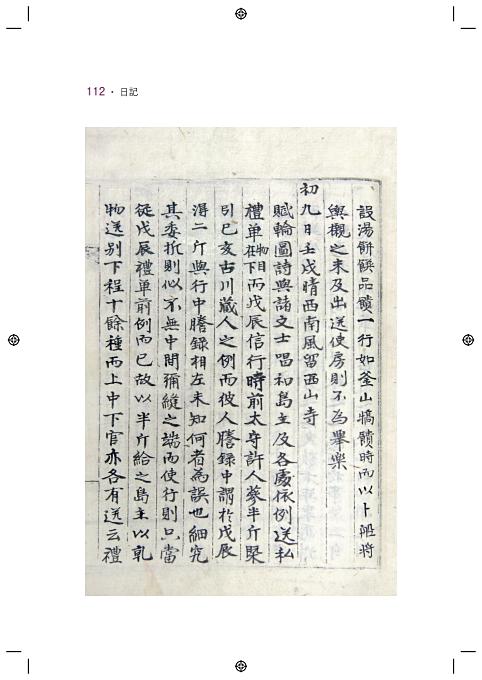 112 · 日記
設湯餠饌品饋一行如釜山犒饋時而以卜船将
輿觀之未及出送使房則不為擧樂
初九日壬戌晴西南風留西山寺
賦輪圖詩與諸文士唱和島主及各處依例送私
禮单在物目下而戊辰信行時前太守許人蔘半斤
引己亥古川藏人之例而彼人謄録中謂於戊辰
淂二斤與行中謄録相左未知何者為誤也細究
其委折則似不無中間彌縫之端而使行則只當
從戊辰禮单前例而已故以半斤給之島主以乹
物送别下程十餘種而上中下官亦各有送云禮